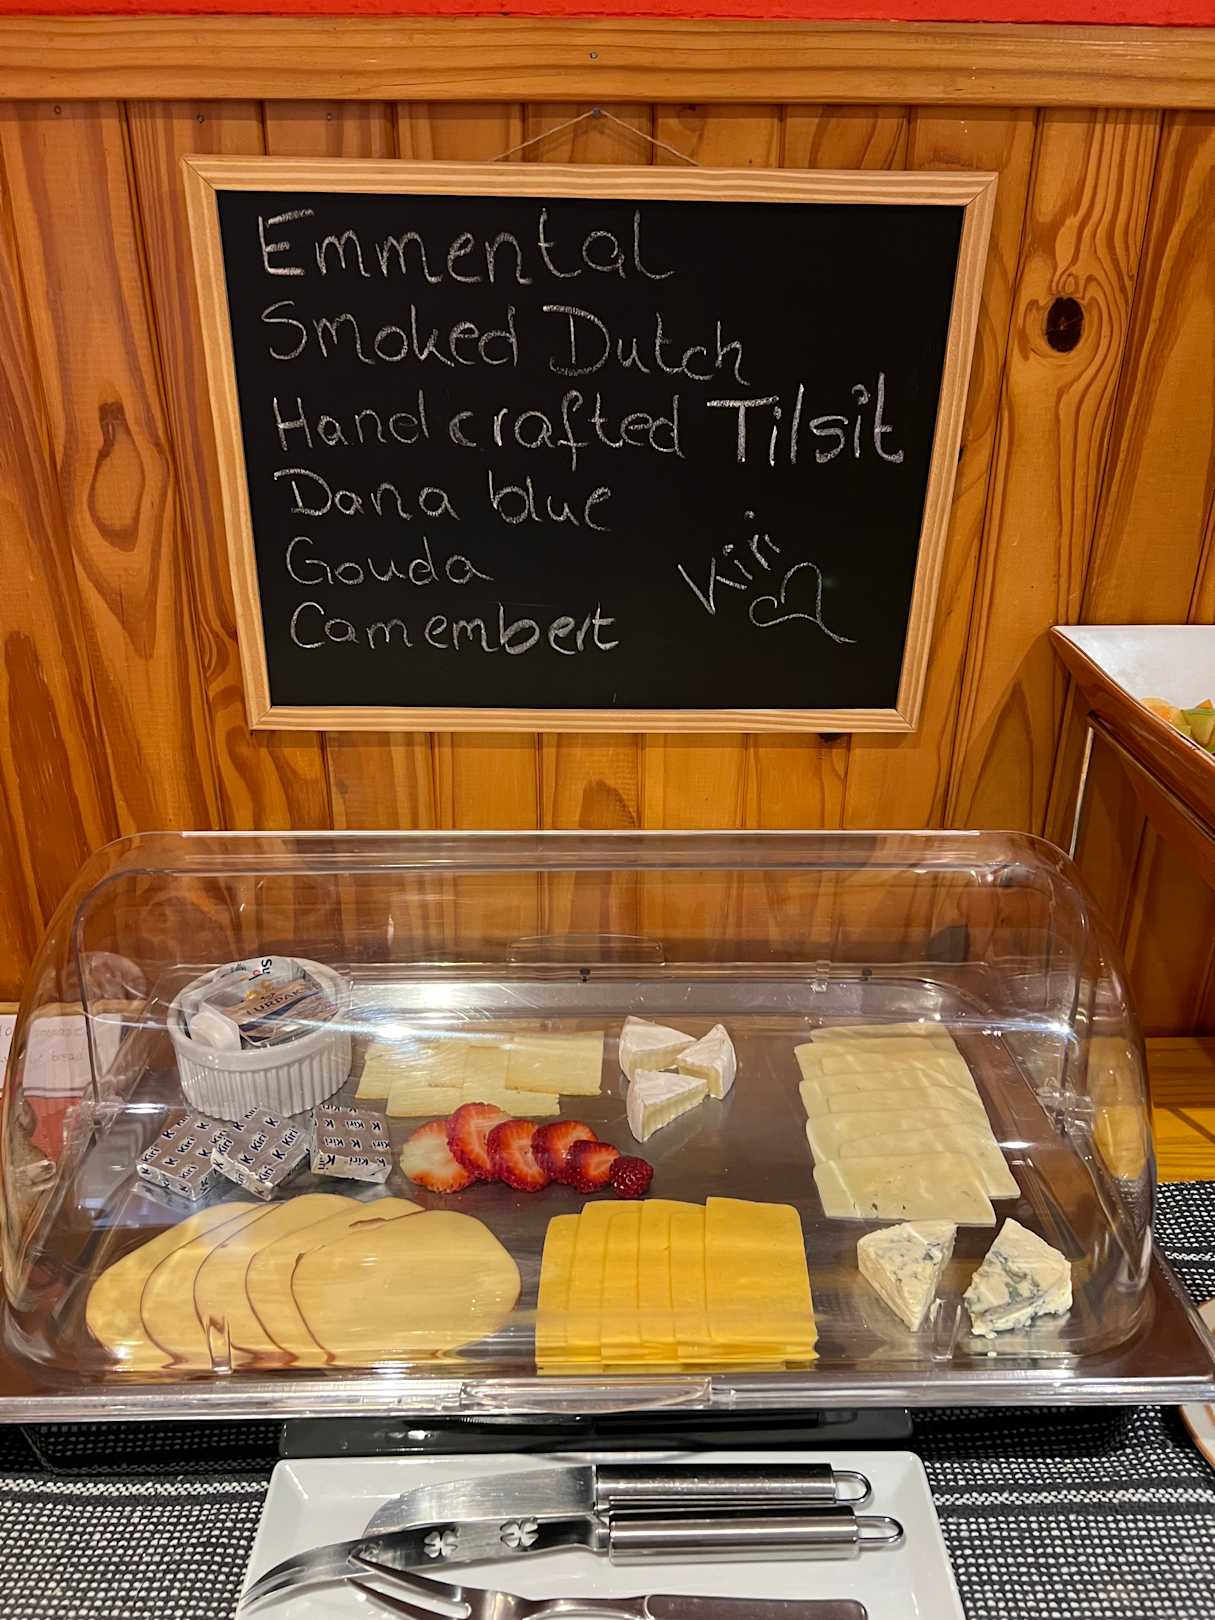 Emmental
Smoked Dutch
Handcrafted Tilsit
Dana blue
Gouda
Camembert
Kiri
LURPAK
K Kiri K
Kiri K Kiri
K Kiri